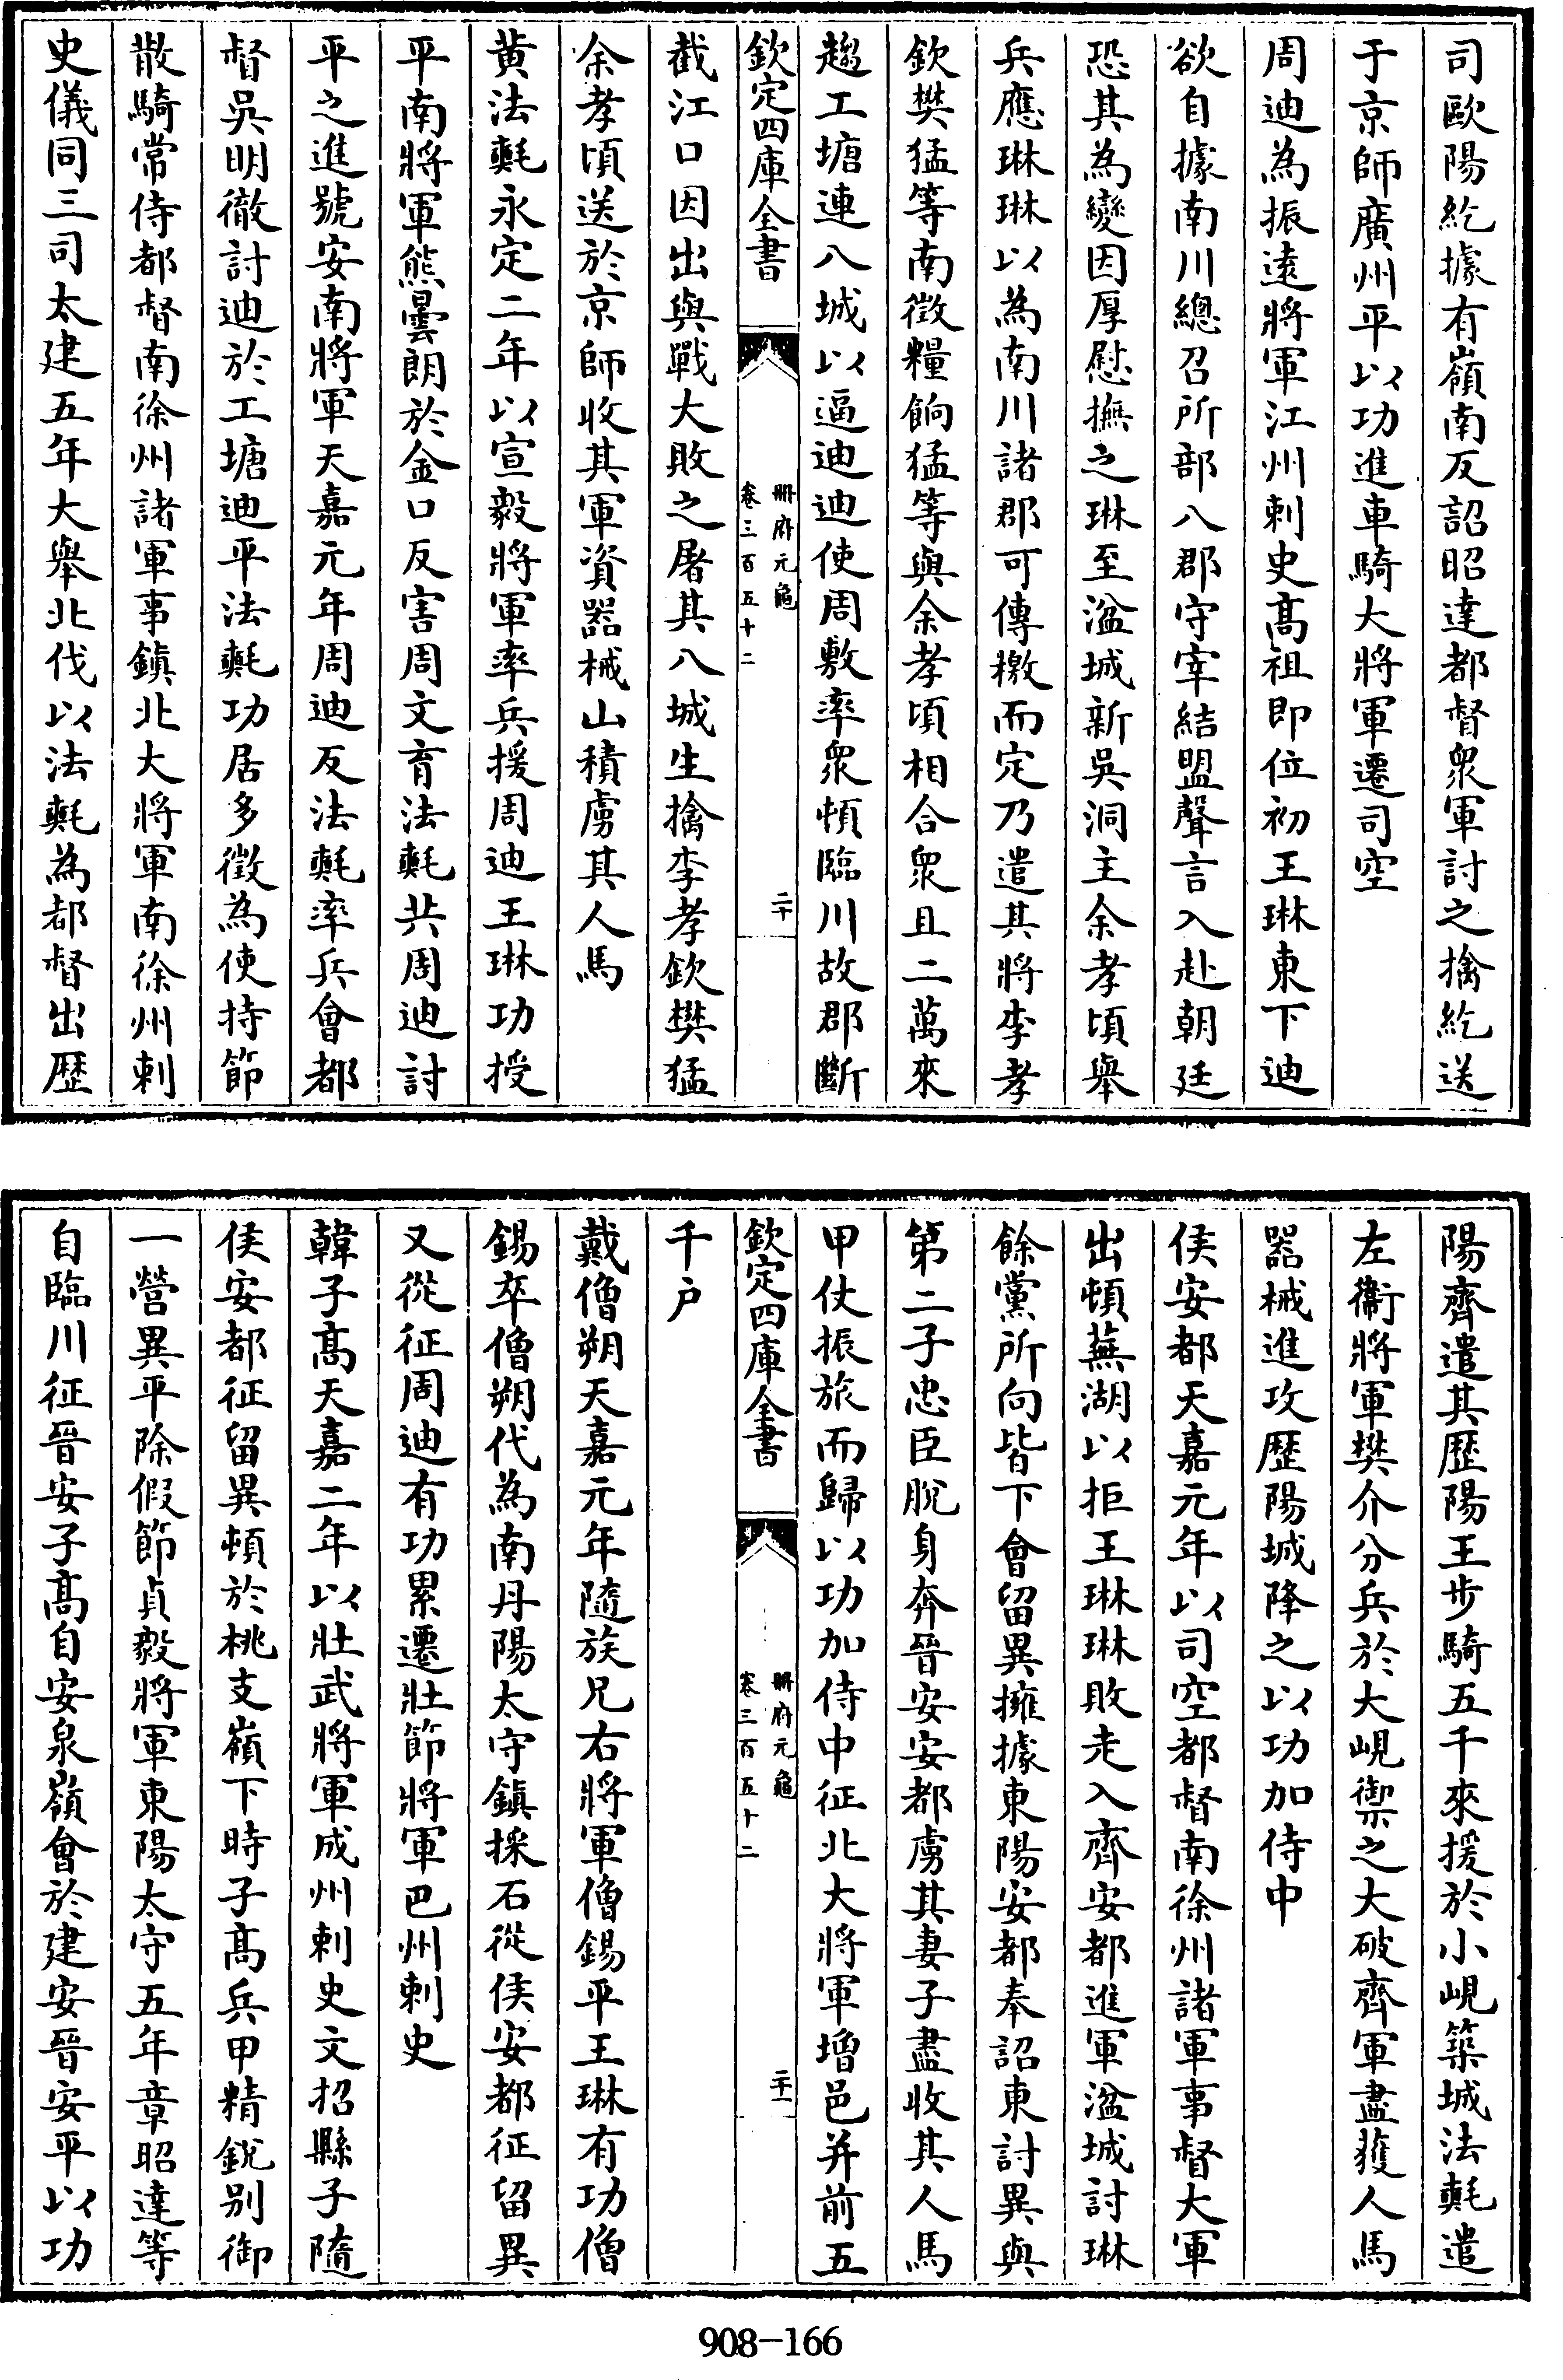 司歐陽紇據有嶺南反詔昭達都督衆軍討之擒紇送
于京師廣州平以功進車騎大將軍遷司空
周迪為振遠將軍江州刺史髙祖即位初王琳東下迪
欲自據南川總召所部八郡守宰結盟聲言入赴朝廷
恐其為變因厚慰撫之琳至湓城新吳洞主余孝頃舉
兵應琳琳以為南川諸郡可傳檄而定乃遣其將李孝
欽樊猛等南徵糧餉猛等與余孝頃相合衆且二萬來
趨工塘連八城以逼迪迪使周敷率衆頓臨川故郡斷
欽定四庫全書
册府元龜
卷三百五十二
二十
截江口因出與戰大敗之屠其八城生擒李孝欽樊猛
余孝頃送於京師收其軍資器械山積虜其人馬
黄法𣰰永定二年以宣毅將軍率兵援周迪王琳功授
平南將軍熊曇朗於金口反害周文育法𣰰共周迪討
平之進號安南將軍天嘉元年周迪反法𣰰率兵會都
督吳明徹討迪於工塘迪平法𣰰功居多徵為使持節
散騎常侍都督南徐州諸軍事鎮北大將軍南徐州刺
史儀同三司太建五年大舉北伐以法𣰰為都督出歴
陽齊遣其歴陽王步騎五千來援於小峴築城法𣰰遣
左衞將軍樊介分兵於大峴禦之大破齊軍盡獲人馬
器械進攻歴陽城降之以功加侍中
侯安都天嘉元年以司空都督南徐州諸軍事督大軍
出頓蕪湖以拒王琳琳敗走入齊安都進軍湓城討琳
餘黨所向皆下會留異擁據東陽安都奉詔東討異與
第二子忠臣脫身奔晉安安都虜其妻子盡收其人馬
甲仗振旅而歸以功加侍中征北大將軍增邑并前五
欽定四庫全書
册府元龜
卷三百五十二
二十一
千户
戴僧朔天嘉元年隨族兄右將軍僧錫平王琳有功僧
錫卒僧朔代為南丹陽太守鎮採石從侯安都征留異
又從征周迪有功累遷壯節將軍巴州刺史
韓子髙天嘉二年以壯武將軍成州刺史文招縣子隨
侯安都征留異頓於桃支嶺下時子髙兵甲精銳别御
一營異平除假節貞毅將軍東陽太守五年章昭達等
自臨川征晉安子髙自安泉嶺會於建安晉安平以功
908-166